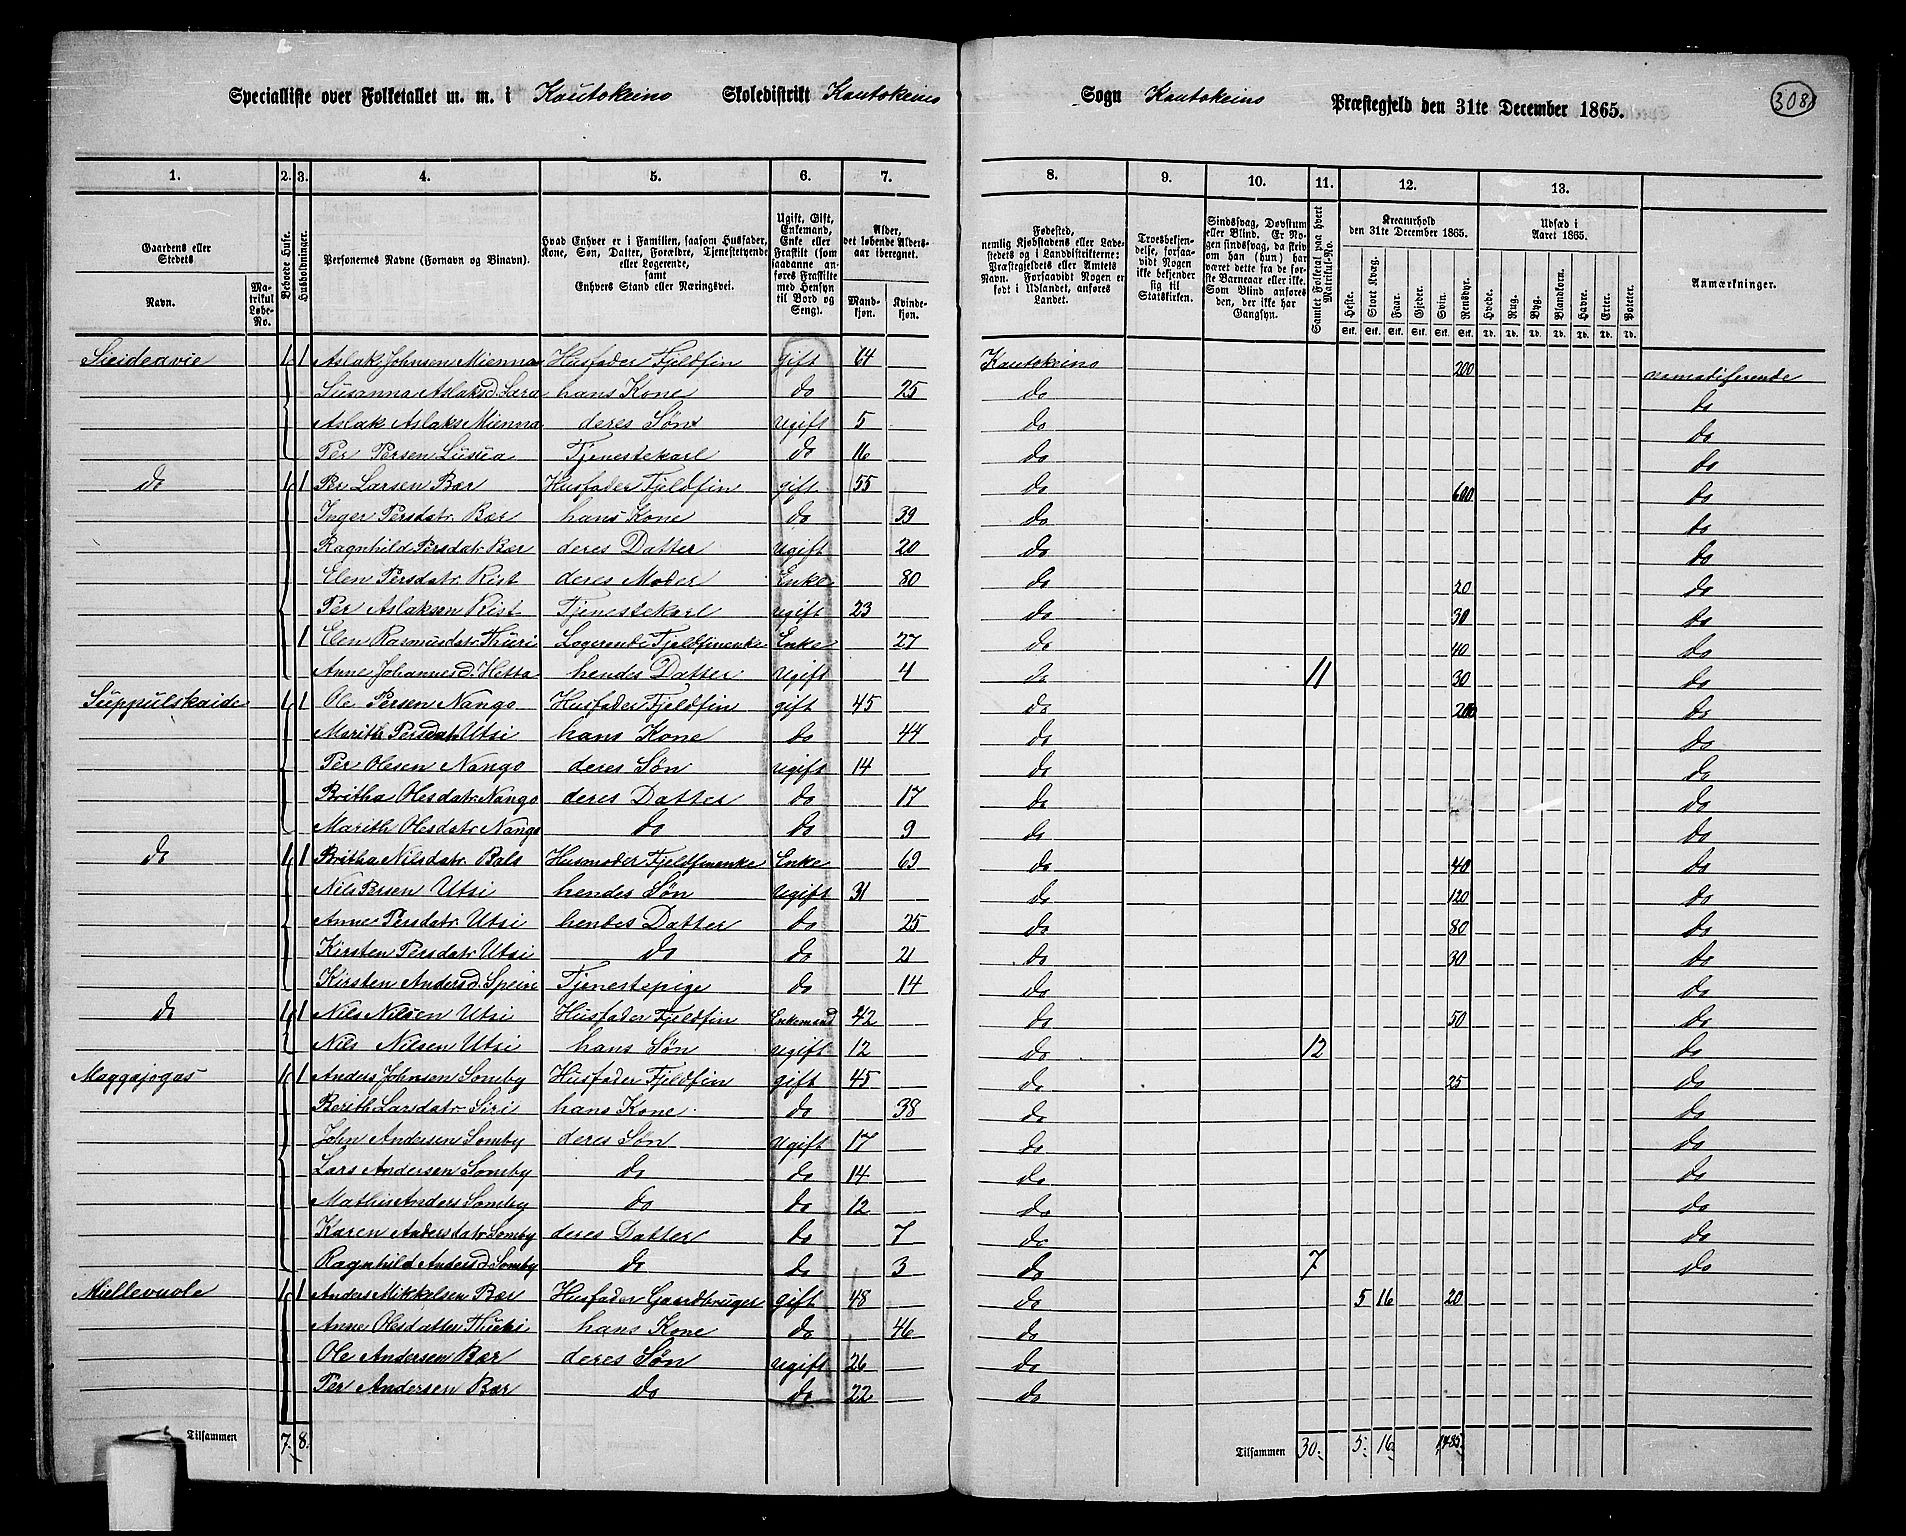 Specialliste over Folketallet m. m. i Kautokeino Skoledistrikt Kautokeino Sogn Kautokeino Præstegjeld den 31te December 1865. 308
1. 2. 3. 4. 5. 6. 7. 8. 9. 10. 11. 12. 13.
Gaardens eller Stedets Navn. Matrikul Løbe-No.
Beboede Huse.
Husholdninger.
Personernes Navne (Fornavn og Binavn).
Hvad Enhver er i Familien, saasom Husfader, Kone, Søn, Datter, Forældre, Tjenestetyende eller Logerende, samt Enhvers Stand eller Næringsvei.
Ugift, Gift, Enkemand, Enke eller Fraskilt (som saadanne anføres Fraskilte med Hensyn til Bord og Seng).
Alder, det løbende Alders-aar iberegnet. Mandkjøn. Kvindekjøn.
Fødested, nemlig Kjøbstadens eller Ladestedets og i Landdistrikterne: Præstegjeldets eller Amtets Navn. Forsaavidt Nogen er født i Udlandet, anføres Landet.
Troesbekjendelse, forsaavidt Nogen ikke bekjender sig til Statskirken.
Sindssvag, Døvstum eller Blind. Er Nogen sindssvag, da skriv om han (hun) har været dette fra de første Barneaar eller ikke. Som Blind anføres den, der ikke har Gangsyn.
Samlet Folketal paa hvert Matrikul-No.
Kreaturhold den 31te December 1865. Heste. Stort Kvæg. Faar. Gjeder. Svin. Rensdyr.
Udsæd i Aaret 1865. Hvede. Rug. Byg. Blandkorn. Havre. Erter. Poteter.
Anmærkninger.
1 1 Aslak Johnsen Mienna Husfader Fjeldfin gift 64 Kautokeino 200
Susanna Aslaksd. Sara hans Kone do 25 do do
Aslak Aslaks Mienna deres Søn ugift 5 do do
Per Persen Tjenestekarl do 16 do do
do 1 1 Per Larsen Bær Husfader Fjeldfin gift 55 do 600 do
Inger Persdatr. Bær hans Kone do 39 do do
Ragnhild Persdatr Bær deres Datter ugift 20 do do
Elen Persdatr. Rist deres Moder Enke 80 do 20 do
Per Aslaksen Rist Tjenestekarl ugift 23 do 30 do
1 Elen Rasmusdatr Thuri Logerende Fjeldfinenke Enke 27 do 40 do
Anne Johannesd. Hetta hendes Datter ugift 4 do 11 30 do
Suppulskaide 1 1 Ole Persen Nango Husfader Fjeldfin gift 45 do 200 do
Marith Persdatr Utsi hans Kone do 44 do do
Per Olesen Nango deres Søn ugift 14 do do
Britha Olesdatr Nango deres Datter do 17 do do
Marith Olesdatr Nango do do 9 do do
do 1 1 Britha Nilsdatr. Bals Husmoder Fjeldfinenke Enke 69 do 40 do
Nils Persen Utsi hendes Søn ugift 31 do 120 do
Anne Persdatr. Utsi hendes Datter do 25 do 80 do
Kirsten Persdatr Utsi do do 21 do 30 do
Kirsten Andersd. Tjenestepige do 14 do do
do 1 1 Nils Nilsen Utsi Husfader Fjeldfin Enkemand 42 do 50 do
Nils Nilsen Utsi hans Søn ugift 12 do 12 do
Maggajogas 1 1 Anders Johnsen Somby Husfader Fjeldfin gift 45 do 25 do
Berith Larsdatr. Siri hans Kone do 38 do do
John Andersen Somby deres Søn ugift 17 do do
Lars Andersen Somby do do 14 do do
Mathis Anders Somby do do 12 do do
Karen Andersdatr Somby deres Datter do 7 do do
Ragnhild Andersd. Somby do do 3 do 7 do
Miellevuole 1 1 Anders Mikkelsen Bær Husfader Gaardbruger gift 48 do 5 16 20
Anne Olesdatter Thuri hans Kone do 46 do
Ole Andersen Bær deres Søn ugift 26 do
Per Andersen Bær do do 22 do
Tilsammen 7. 8. Tilsammen 30. 5. 16. 1485.